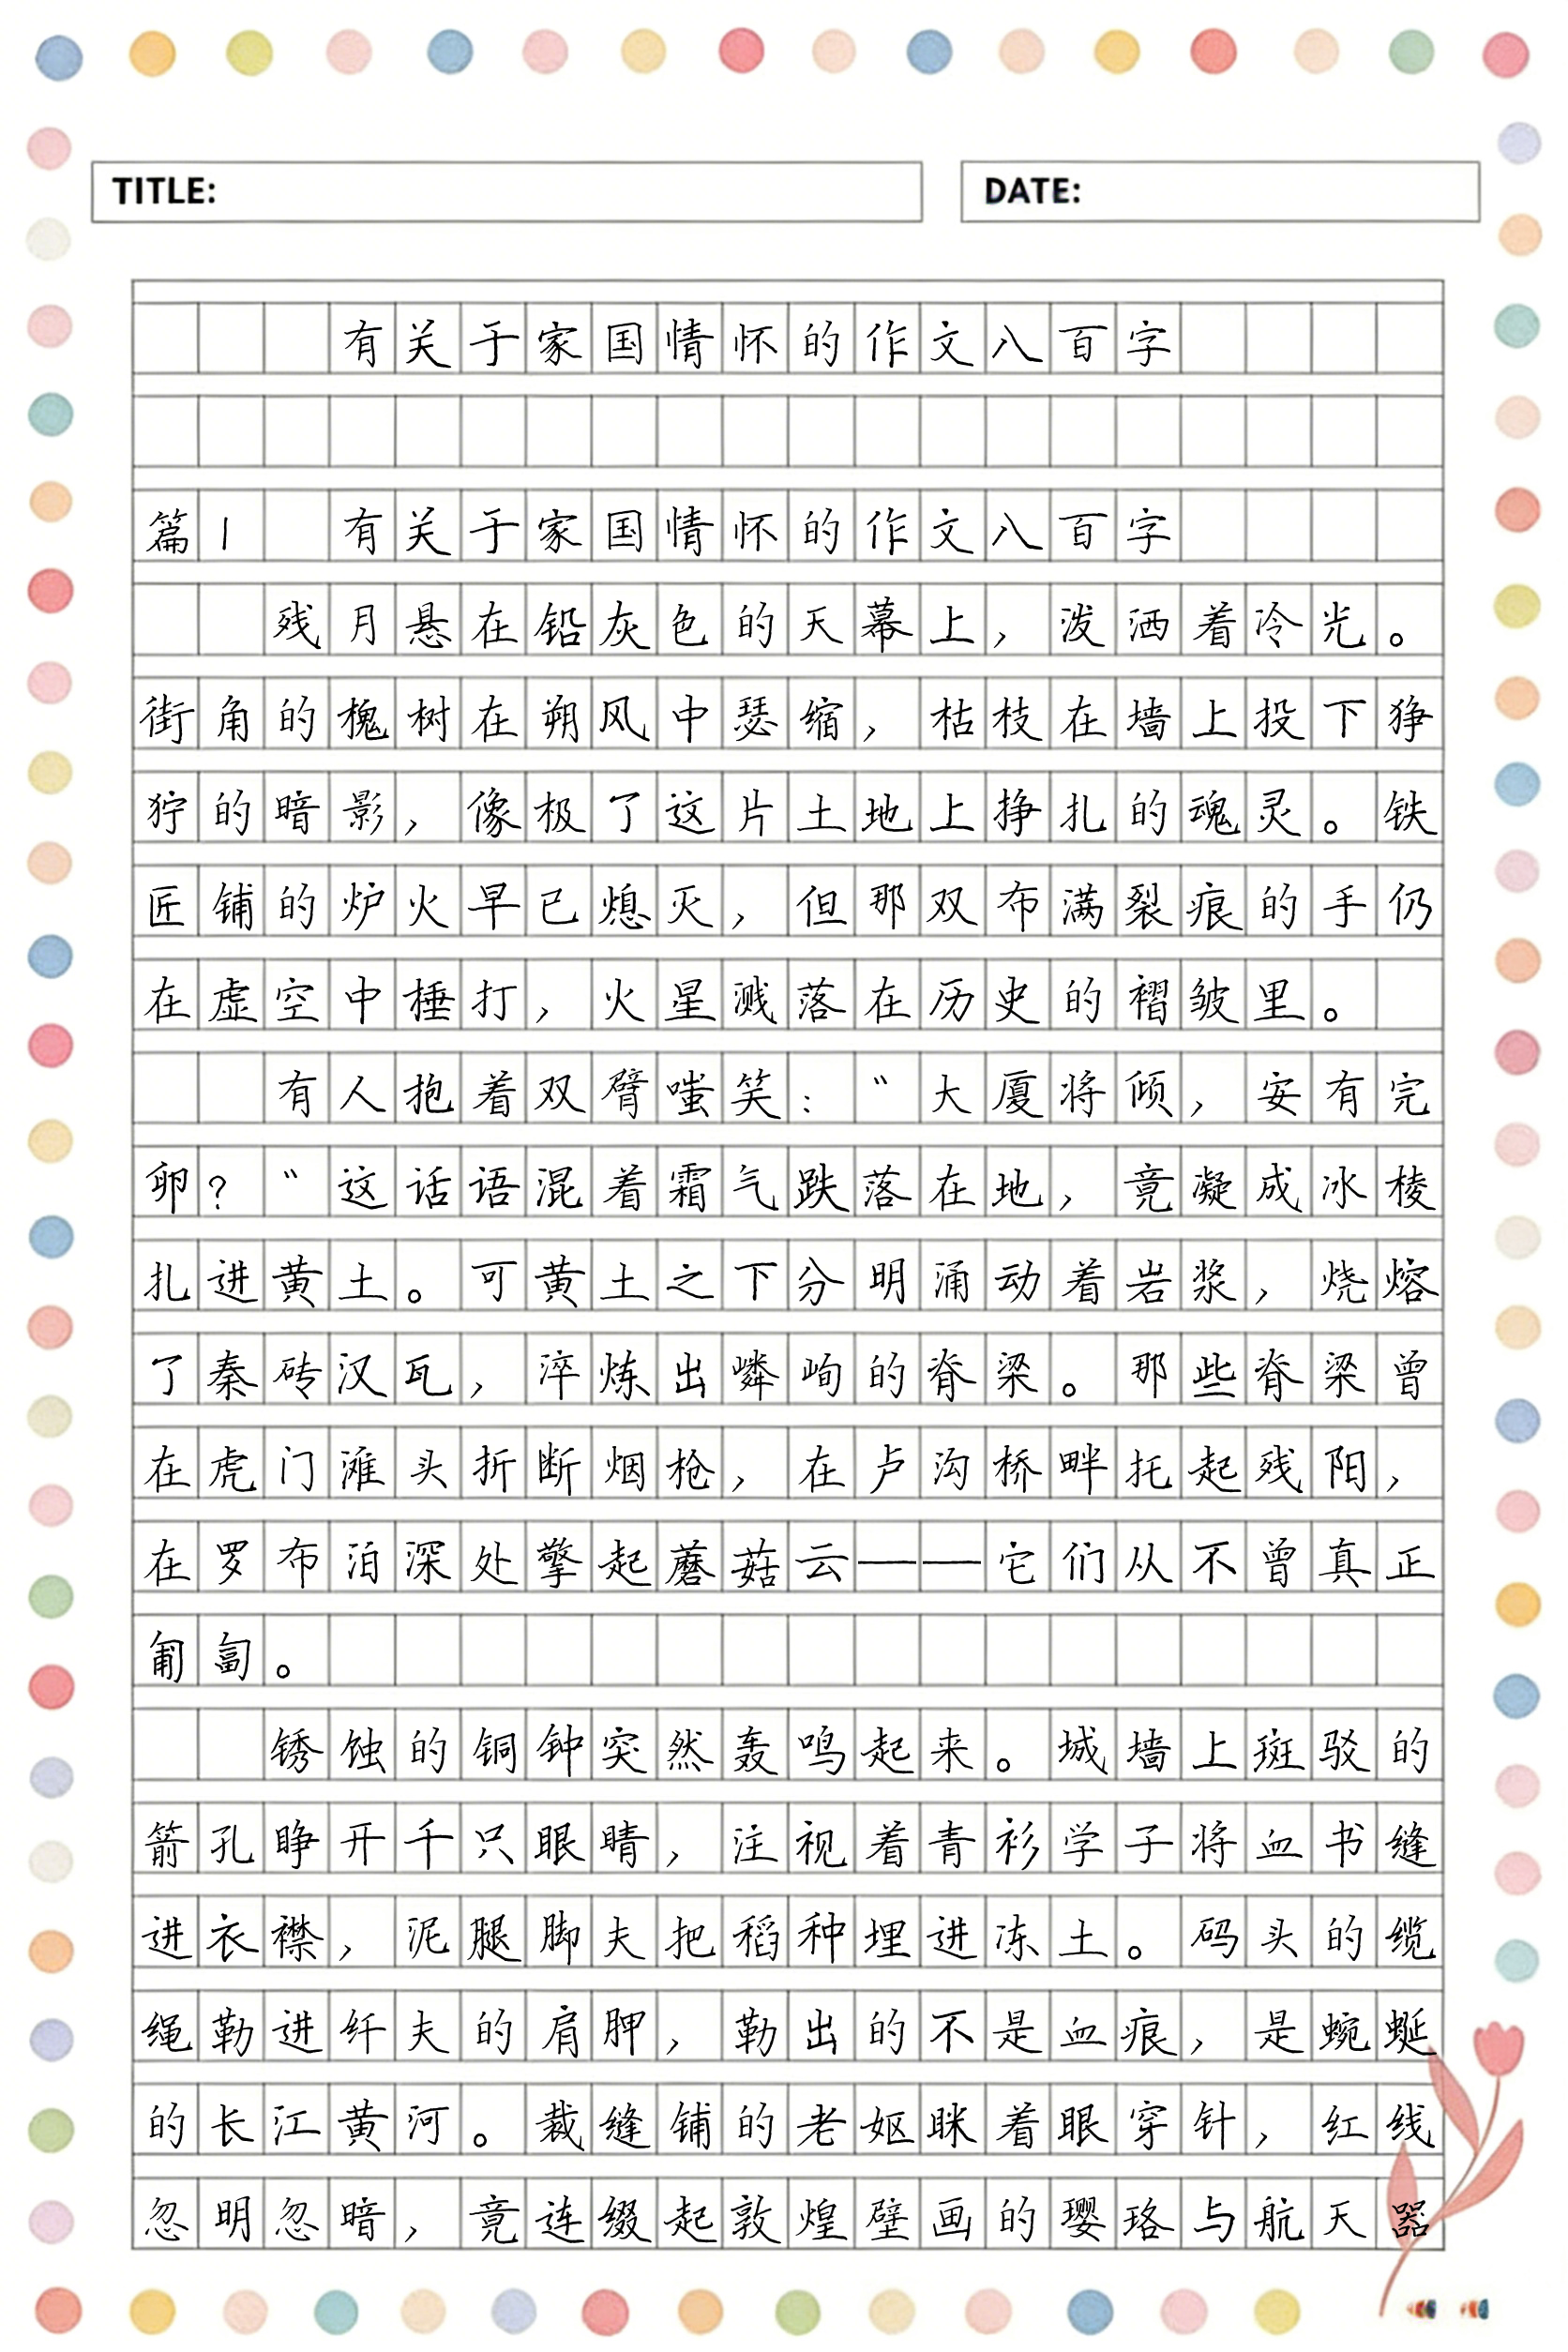 TITLE:
DATE:
有关于家国情怀的作文八百字
篇1 有关于家国情怀的作文八百字
残月悬在铅灰色的天幕上，泼洒着冷光。
街角的槐树在朔风中瑟缩，枯枝在墙上投下狰
狞的暗影，像极了这片土地上挣扎的魂灵。铁
匠铺的炉火早已熄灭，但那双布满裂痕的手仍
在虚空中捶打，火星溅落在历史的褶皱里。
有人抱着双臂嗤笑："大厦将倾，安有完
卵？"这话语混着霜气跌落在地，竟凝成冰棱
扎进黄土。可黄土之下分明涌动着岩浆，烧熔
了秦砖汉瓦，淬炼出嶙峋的脊梁。那些脊梁曾
在虎门滩头折断烟枪，在卢沟桥畔托起残阳，
在罗布泊深处擎起蘑菇云——它们从不曾真正
匍匐。
锈蚀的铜钟突然轰鸣起来。城墙上斑驳的
箭孔睁开千只眼睛，注视着青衫学子将血书缝
进衣襟，泥腿脚夫把稻种埋进冻土。码头的缆
绳勒进纤夫的肩胛，勒出的不是血痕，是蜿蜒
的长江黄河。裁缝铺的老妪眯着眼穿针，红线
忽明忽暗，竟连缀起敦煌壁画的璎珞与航天器